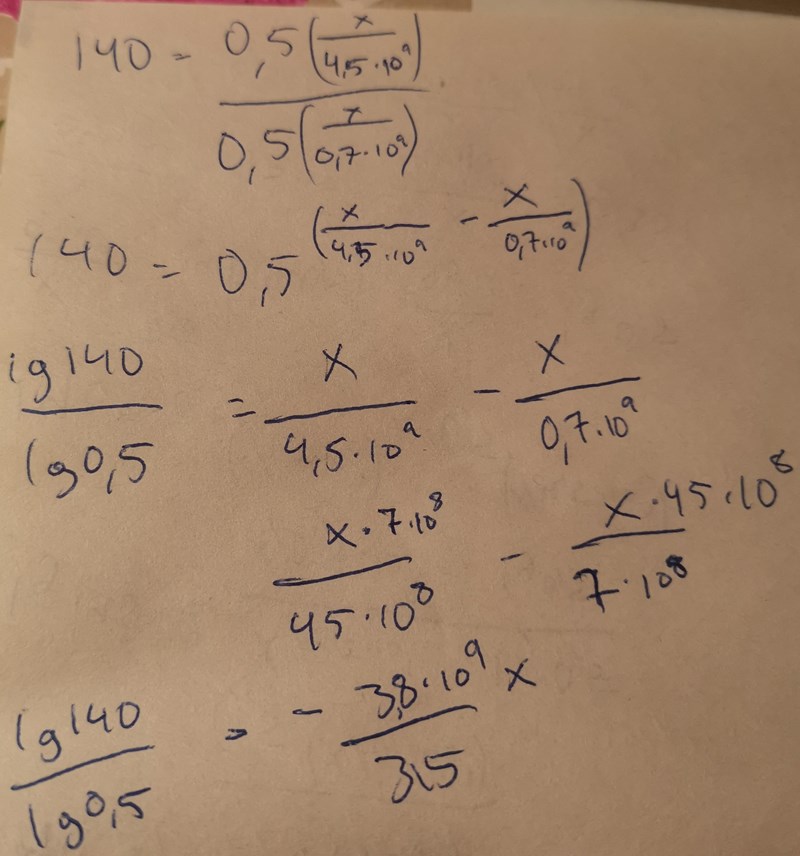 140 = 0,5^(x/(4,5·10^9)) / 0,5^(x/(0,7·10^9))
140 = 0,5^(x/(4,5·10^9) - x/(0,7·10^9))
lg140/lg0,5 = x/(4,5·10^9) - x/(0,7·10^9)
x·7·10^8/(45·10^8) - x·45·10^8/(7·10^8)
lg140/lg0,5 = - 3,8·10^9 x/3,15